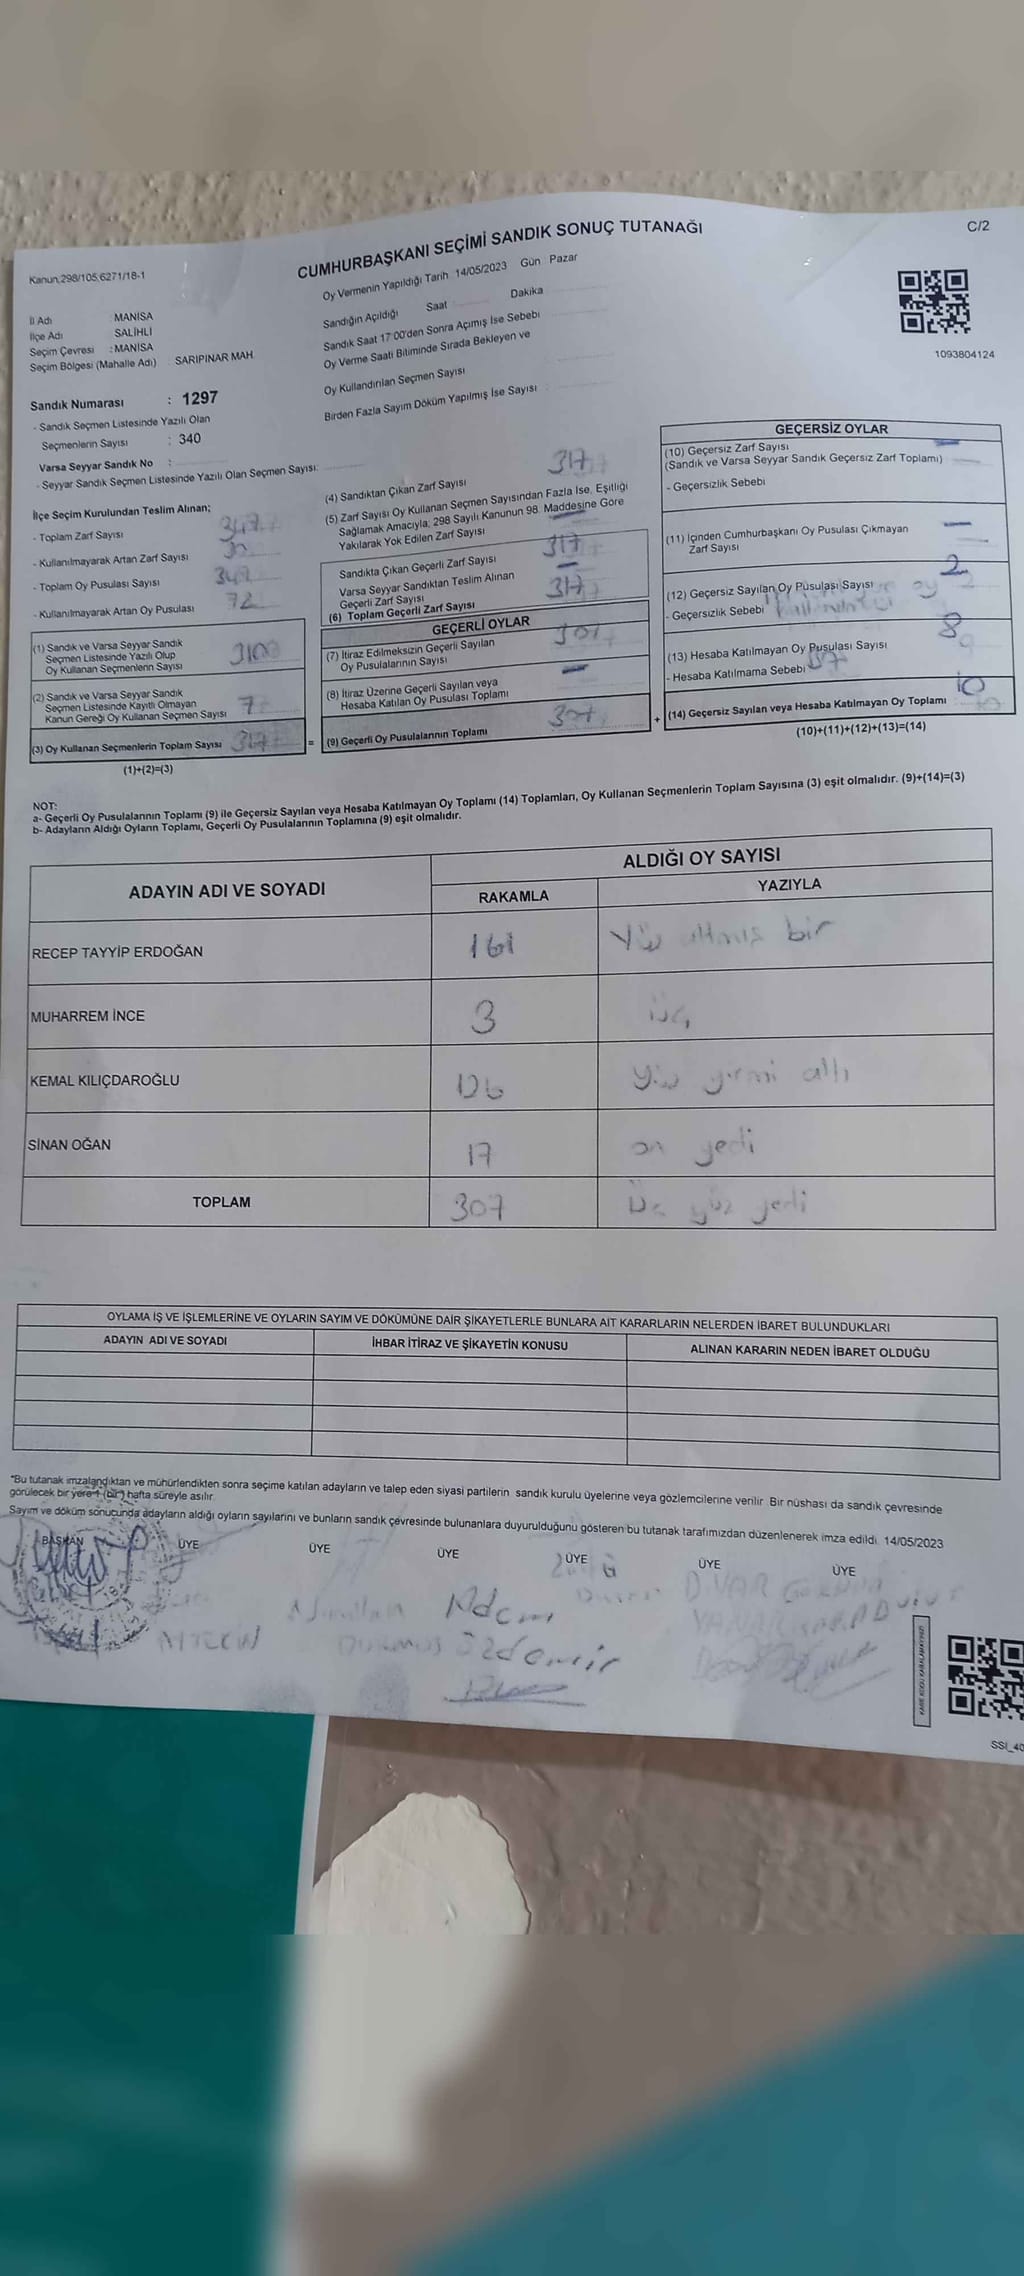 CUMHURBAŞKANI SEÇİMİ SANDIK SONUÇ TUTANAĞI
C/2
Kanun,298/105,6271/18-1
Oy Vermenin Yapıldığı Tarih 14/05/2023 Gün Pazar
İl Adı : MANİSA
İlçe Adı : SALİHLİ
Seçim Çevresi : MANİSA
Seçim Bölgesi (Mahalle Adı) : SARIPINAR MAH
Sandığın Açıldığı Saat Dakika
Sandık Saat 17:00'den Sonra Açımış İse Sebebi
Oy Verme Saati Bitiminde Sırada Bekleyen ve
Oy Kullandırılan Seçmen Sayısı
Birden Fazla Sayım Döküm Yapılmış İse Sayısı :
1093804124
Sandık Numarası : 1297
- Sandık Seçmen Listesinde Yazılı Olan
Seçmenlerin Sayısı : 340
Varsa Seyyar Sandık No :
- Seyyar Sandık Seçmen Listesinde Yazılı Olan Seçmen Sayısı:
İlçe Seçim Kurulundan Teslim Alınan;
- Toplam Zarf Sayısı 347
- Kullanılmayarak Artan Zarf Sayısı
- Toplam Oy Pusulası Sayısı
- Kullanılmayarak Artan Oy Pusulası 72
(1) Sandık ve Varsa Seyyar Sandık
Seçmen Listesinde Yazılı Olup
Oy Kullanan Seçmenlerin Sayısı
(2) Sandık ve Varsa Seyyar Sandık
Seçmen Listesinde Kayıtlı Olmayan
Kanun Gereği Oy Kullanan Seçmen Sayısı 7
(3) Oy Kullanan Seçmenlerin Toplam Sayısı 317
(1)+(2)=(3)
=
(4) Sandıktan Çıkan Zarf Sayısı 317
(5) Zarf Sayısı Oy Kullanan Seçmen Sayısından Fazla İse, Eşitliği
Sağlamak Amacıyla; 298 Sayılı Kanunun 98. Maddesine Göre
Yakılarak Yok Edilen Zarf Sayısı –
Sandıkta Çıkan Geçerli Zarf Sayısı 317
Varsa Seyyar Sandıktan Teslim Alınan
Geçerli Zarf Sayısı –
(6) Toplam Geçerli Zarf Sayısı 317
GEÇERLİ OYLAR
(7) İtiraz Edilmeksizin Geçerli Sayılan
Oy Pusulalarının Sayısı 307
(8) İtiraz Üzerine Geçerli Sayılan veya
Hesaba Katılan Oy Pusulası Toplamı –
(9) Geçerli Oy Pusulalarının Toplamı 307
+
GEÇERSİZ OYLAR
(10) Geçersiz Zarf Sayısı –
(Sandık ve Varsa Seyyar Sandık Geçersiz Zarf Toplamı)
- Geçersizlik Sebebi
(11) İçinden Cumhurbaşkanı Oy Pusulası Çıkmayan
Zarf Sayısı –
(12) Geçersiz Sayılan Oy Pusulası Sayısı 2
- Geçersizlik Sebebi
(13) Hesaba Katılmayan Oy Pusulası Sayısı 8
- Hesaba Katılmama Sebebi
(14) Geçersiz Sayılan veya Hesaba Katılmayan Oy Toplamı 10
(10)+(11)+(12)+(13)=(14)
NOT:
a- Geçerli Oy Pusulalarının Toplamı (9) ile Geçersiz Sayılan veya Hesaba Katılmayan Oy Toplamı (14) Toplamları, Oy Kullanan Seçmenlerin Toplam Sayısına (3) eşit olmalıdır. (9)+(14)=(3)
b- Adayların Aldığı Oyların Toplamı, Geçerli Oy Pusulalarının Toplamına (9) eşit olmalıdır.
ADAYIN ADI VE SOYADI
ALDIĞI OY SAYISI
RAKAMLA YAZIYLA
RECEP TAYYİP ERDOĞAN 161 Yüz altmış bir
MUHARREM İNCE 3 üç
KEMAL KILIÇDAROĞLU 126 yüz yirmi altı
SİNAN OĞAN 17 on yedi
TOPLAM 307 Üç yüz yedi
OYLAMA İŞ VE İŞLEMLERİNE VE OYLARIN SAYIM VE DÖKÜMÜNE DAİR ŞİKAYETLERLE BUNLARA AİT KARARLARIN NELERDEN İBARET BULUNDUKLARI
ADAYIN ADI VE SOYADI İHBAR İTİRAZ VE ŞİKAYETİN KONUSU ALINAN KARARIN NEDEN İBARET OLDUĞU
"Bu tutanak imzalandıktan ve mühürlendikten sonra seçime katılan adayların ve talep eden siyasi partilerin sandık kurulu üyelerine veya gözlemcilerine verilir. Bir nüshası da sandık çevresinde
görülecek bir yere 1 (bir) hafta süreyle asılır.
Sayım ve döküm sonucunda adayların aldığı oyların sayılarını ve bunların sandık çevresinde bulunanlara duyurulduğunu gösteren bu tutanak tarafımızdan düzenlenerek imza edildi. 14/05/2023
BAŞKAN ÜYE ÜYE ÜYE ÜYE ÜYE ÜYE
Adem
Özdemir
SSİ_40